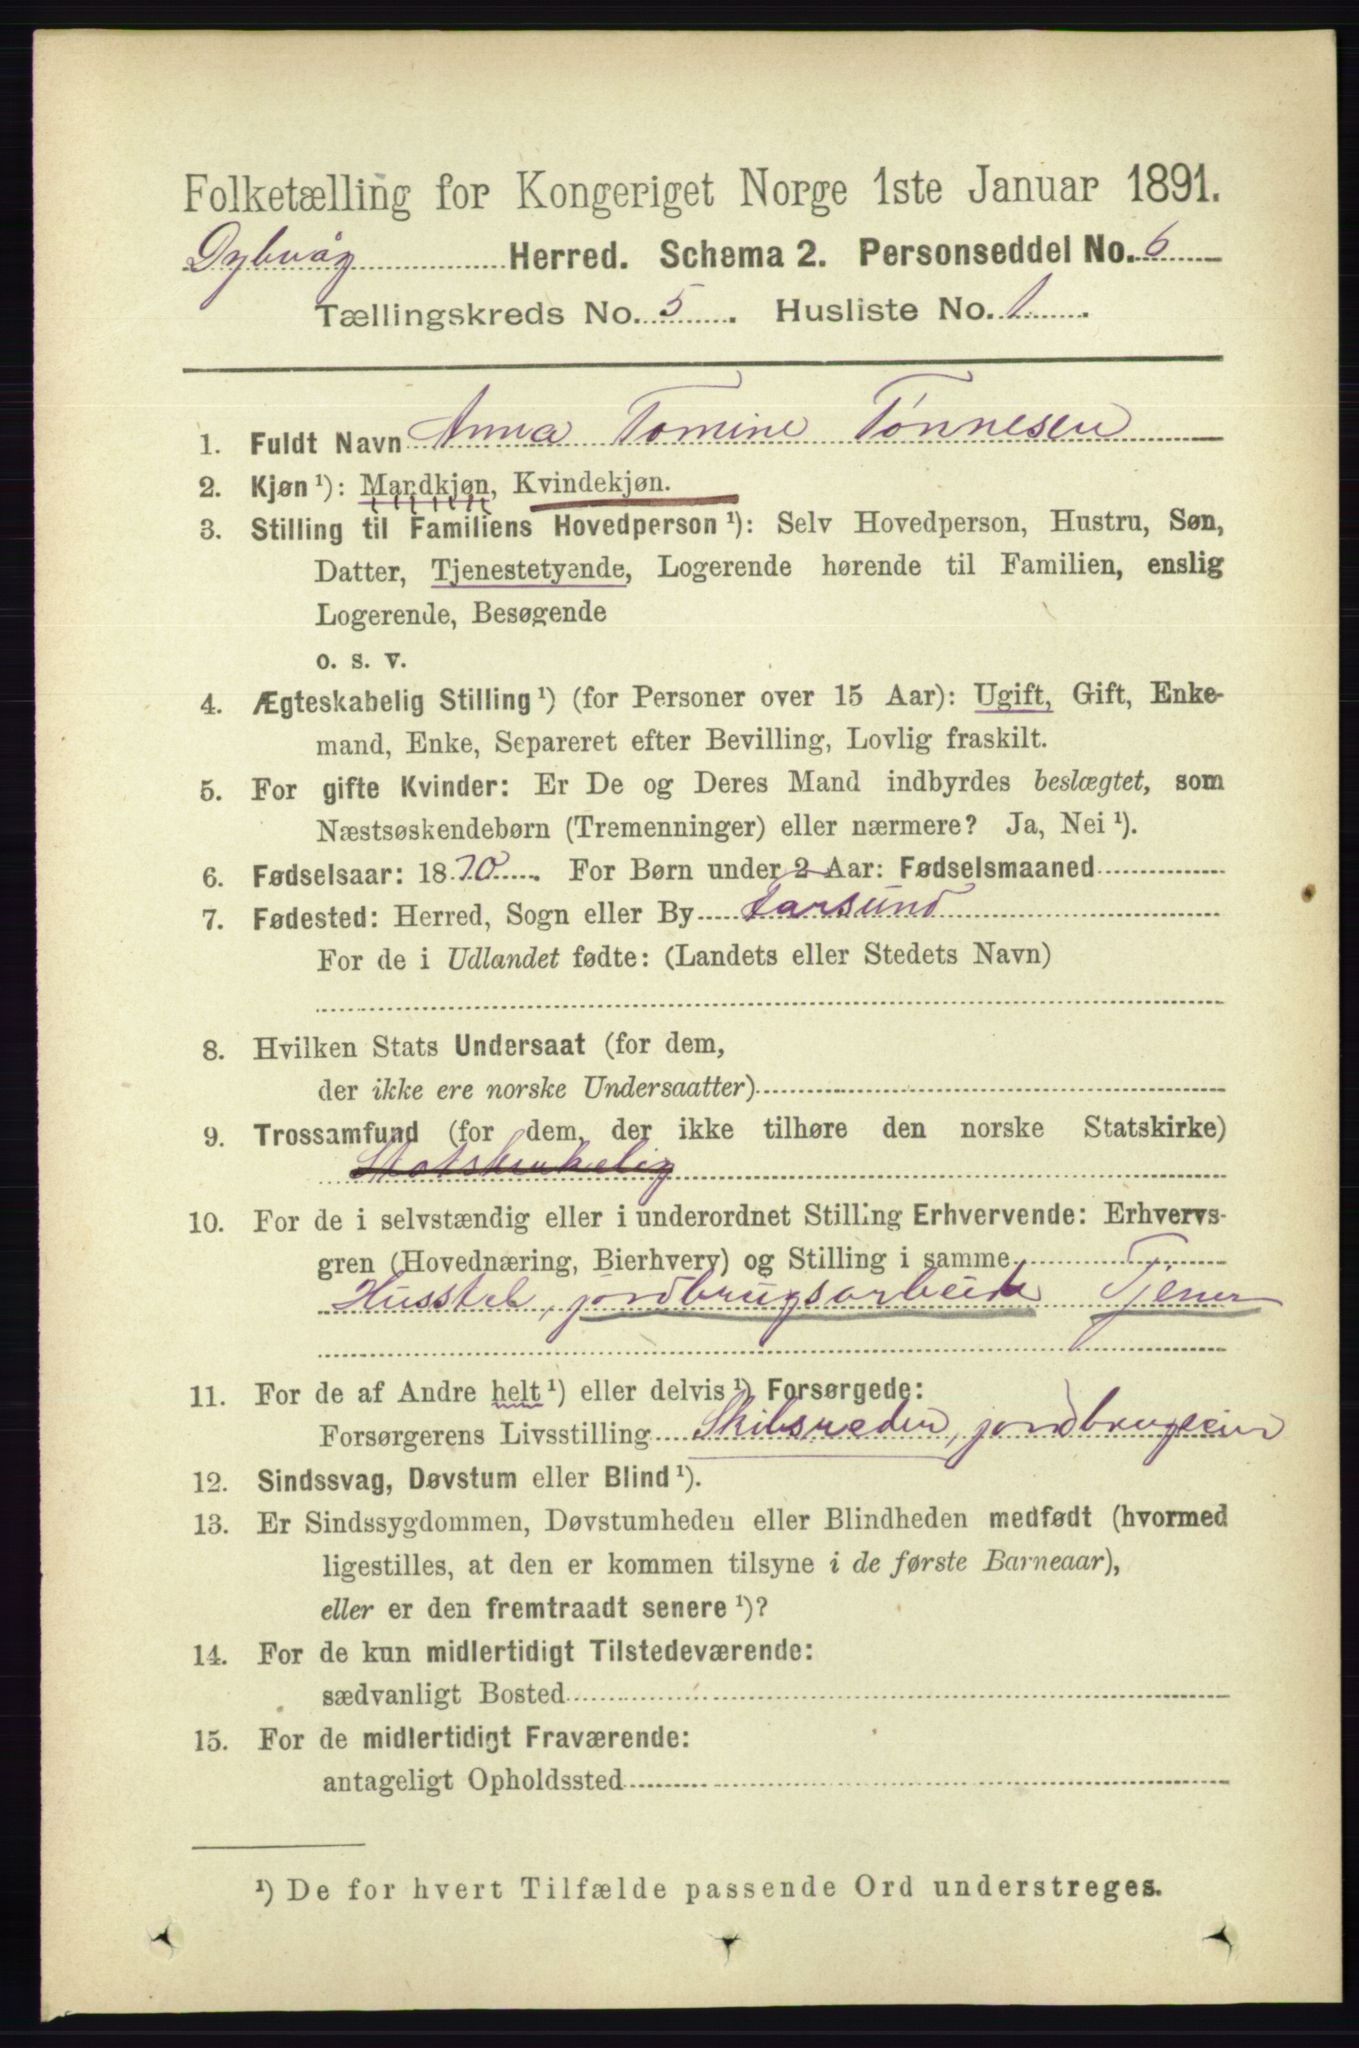 Folketælling for Kongeriget Norge 1ste Januar 1891.
Dybvåg Herred. Schema 2. Personseddel No. 6
Tællingskreds No. 5. Husliste No. 1.
1. Fuldt Navn Anna Tomine Tønnesen
2. Kjøn ¹): Mandkjøn, Kvindekjøn.
3. Stilling til Familiens Hovedperson ¹): Selv Hovedperson, Hustru, Søn,
Datter, Tjenestetyende, Logerende hørende til Familien, enslig
Logerende, Besøgende
o. s. v.
4. Ægteskabelig Stilling ¹) (for Personer over 15 Aar): Ugift, Gift, Enke-
mand, Enke, Separeret efter Bevilling, Lovlig fraskilt.
5. For gifte Kvinder: Er De og Deres Mand indbyrdes beslægtet, som
Næstsøskendebørn (Tremenninger) eller nærmere? Ja, Nei ¹).
6. Fødselsaar: 1870. For Børn under 2 Aar: Fødselsmaaned
7. Fødested: Herred, Sogn eller By Farsund
For de i Udlandet fødte: (Landets eller Stedets Navn)
8. Hvilken Stats Undersaat (for dem,
der ikke ere norske Undersaatter)
9. Trossamfund (for dem, der ikke tilhøre den norske Statskirke)
Statskirkelig
10. For de i selvstændig eller i underordnet Stilling Erhvervende: Erhvervs-
gren (Hovednæring, Bierhverv) og Stilling i samme
Husstel, jordbrugsarbeide Tjener
11. For de af Andre helt ¹) eller delvis ¹) Forsørgede:
Forsørgerens Livsstilling Skibsreder, jordbrugeier
12. Sindssvag, Døvstum eller Blind ¹).
13. Er Sindssygdommen, Døvstumheden eller Blindheden medfødt (hvormed
ligestilles, at den er kommen tilsyne i de første Barneaar),
eller er den fremtraadt senere ¹)?
14. For de kun midlertidigt Tilstedeværende:
sædvanligt Bosted
15. For de midlertidigt Fraværende:
antageligt Opholdssted
¹) De for hvert Tilfælde passende Ord understreges.